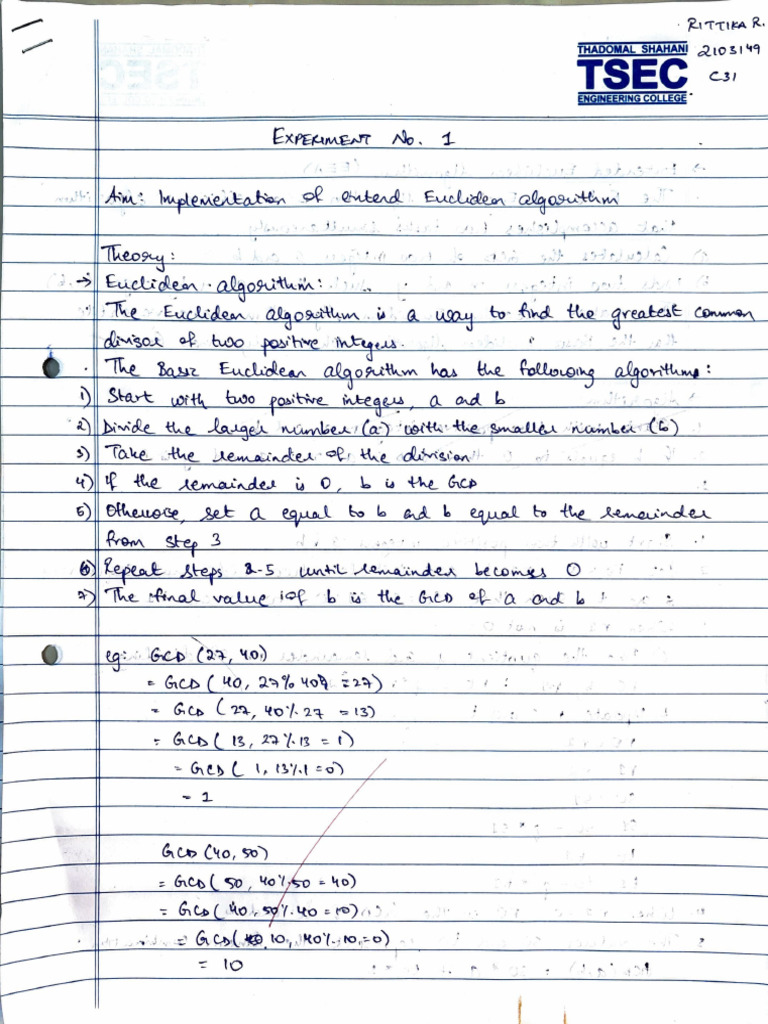 RITTIKA R.
THADOMAL SHAHANI
2103149
TSEC
C31
ENGINEERING COLLEGE
EXPERIMENT No. 1
Aim: Implementation of extend Euclidean algorithm
Theory:
→ Euclidean algorithm:
The Euclidean algorithm is a way to find the greatest common
divisor of two positive integers.
. The Basic Euclidean algorithm has the following algorithm:
1) Start with two positive integers, a and b
2) Divide the larger number (a) with the smaller number (b)
3) Take the remainder of the division
4) If the remainder is 0, b is the GCD
5) Otherwise, set a equal to b and b equal to the remainder
from step 3
6) Repeat steps 2-5 until remainder becomes 0
7) The final value of b is the GCD of a and b
eg: GCD (27, 40)
= GCD (40, 27%40 = 27)
= GCD (27, 40%27 = 13)
= GCD (13, 27%13 = 1)
= GCD (1, 13%1 = 0)
= 1
GCD (40, 50)
= GCD (50, 40%50 = 40)
= GCD (40, 50%40 = 10)
= GCD (10, 40%10 = 0)
= 10